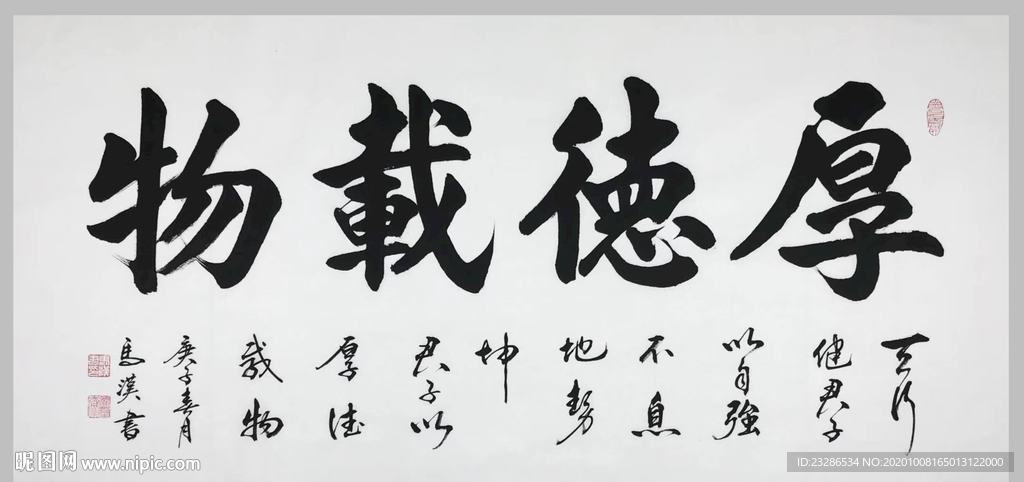 厚德載物
天行
健君子
以自強
不息
地勢
坤
君子以
厚德
載物
庚子春月
馬漢書
昵图网 www.nipic.com
ID:23286534 NO:20201008165013122000